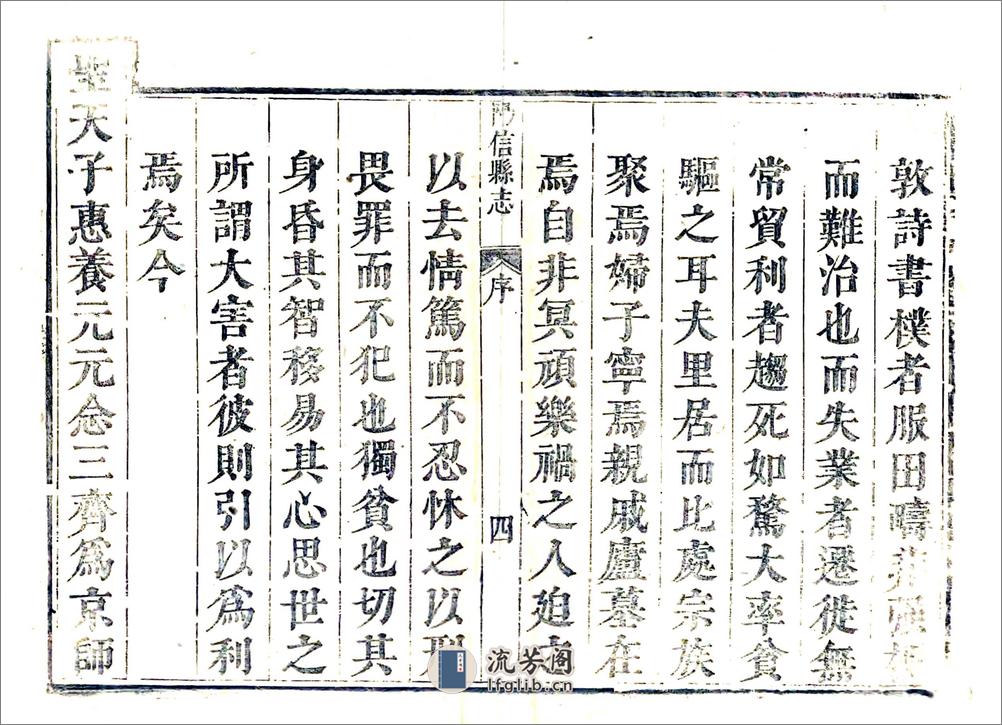 敦詩書樸者服田疇非强梗
而難治也而失業者遷徙無
常貿利者趨死如騖大率貧
驅之耳夫里居而比處宗族
聚焉婦子寧焉親戚廬墓在
焉自非冥頑樂禍之人迫之
陽信縣志
序
四
以去情篤而不忍怵之以刑
畏罪而不犯也獨貧也切其
身昏其智移易其心思世之
所謂大害者彼則引以為利
焉矣今
聖天子惠養元元念三齊為京師
流芳阁
lfglib.cn